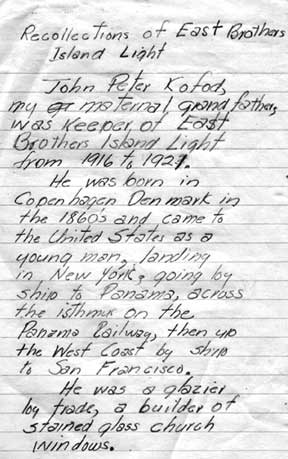 Recollections of East Brothers
Island Light
John Peter Kofod,
my maternal grandfather,
was Keeper of East
Brothers Island Light
from 1916 to 1921.
He was born in
Copenhagen Denmark in
the 1860's and came to
the United States as a
young man, landing
in New York, going by
ship to Panama, across
the isthmus on the
Panama Railway, then up
the West Coast by ship
to San Francisco.
He was a glazier
by trade, a builder of
stained glass church
windows.